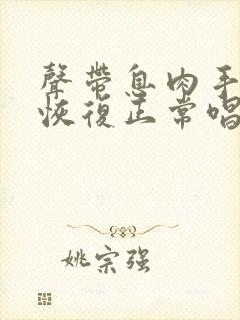 聲帶息肉手
恢復正常唱
姚宗强